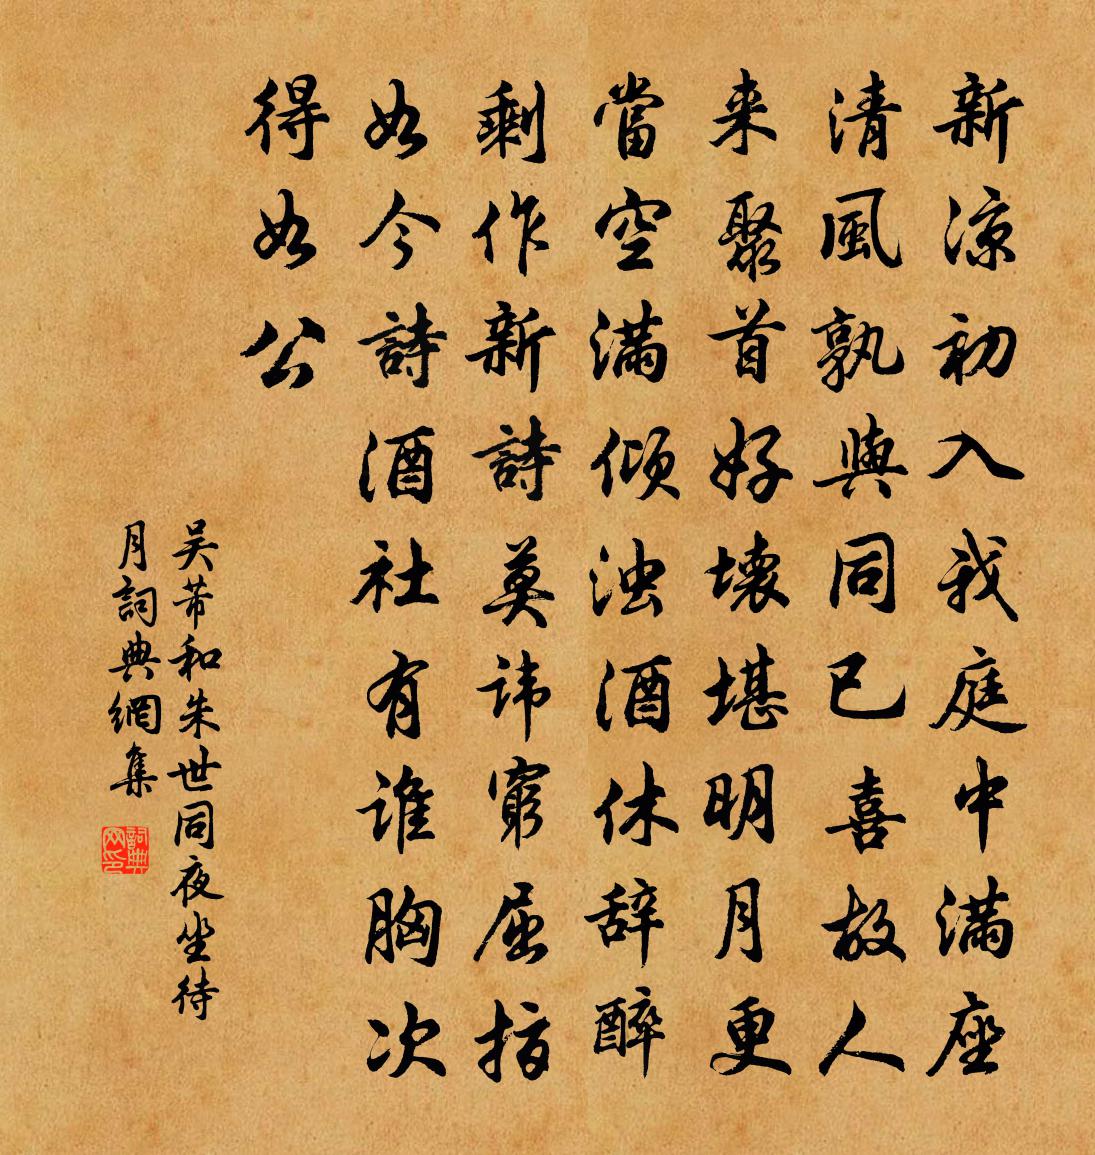 新涼初入我庭中滿座
清風孰與同已喜故人
来聚首好壊堪明月更
當空滿傾浊酒休辞醉
剩作新詩莫讳窮屈指
如今詩酒社有谁胸次
得如公
吴芾和朱世同夜坐待
月詞典網集
詞典网印